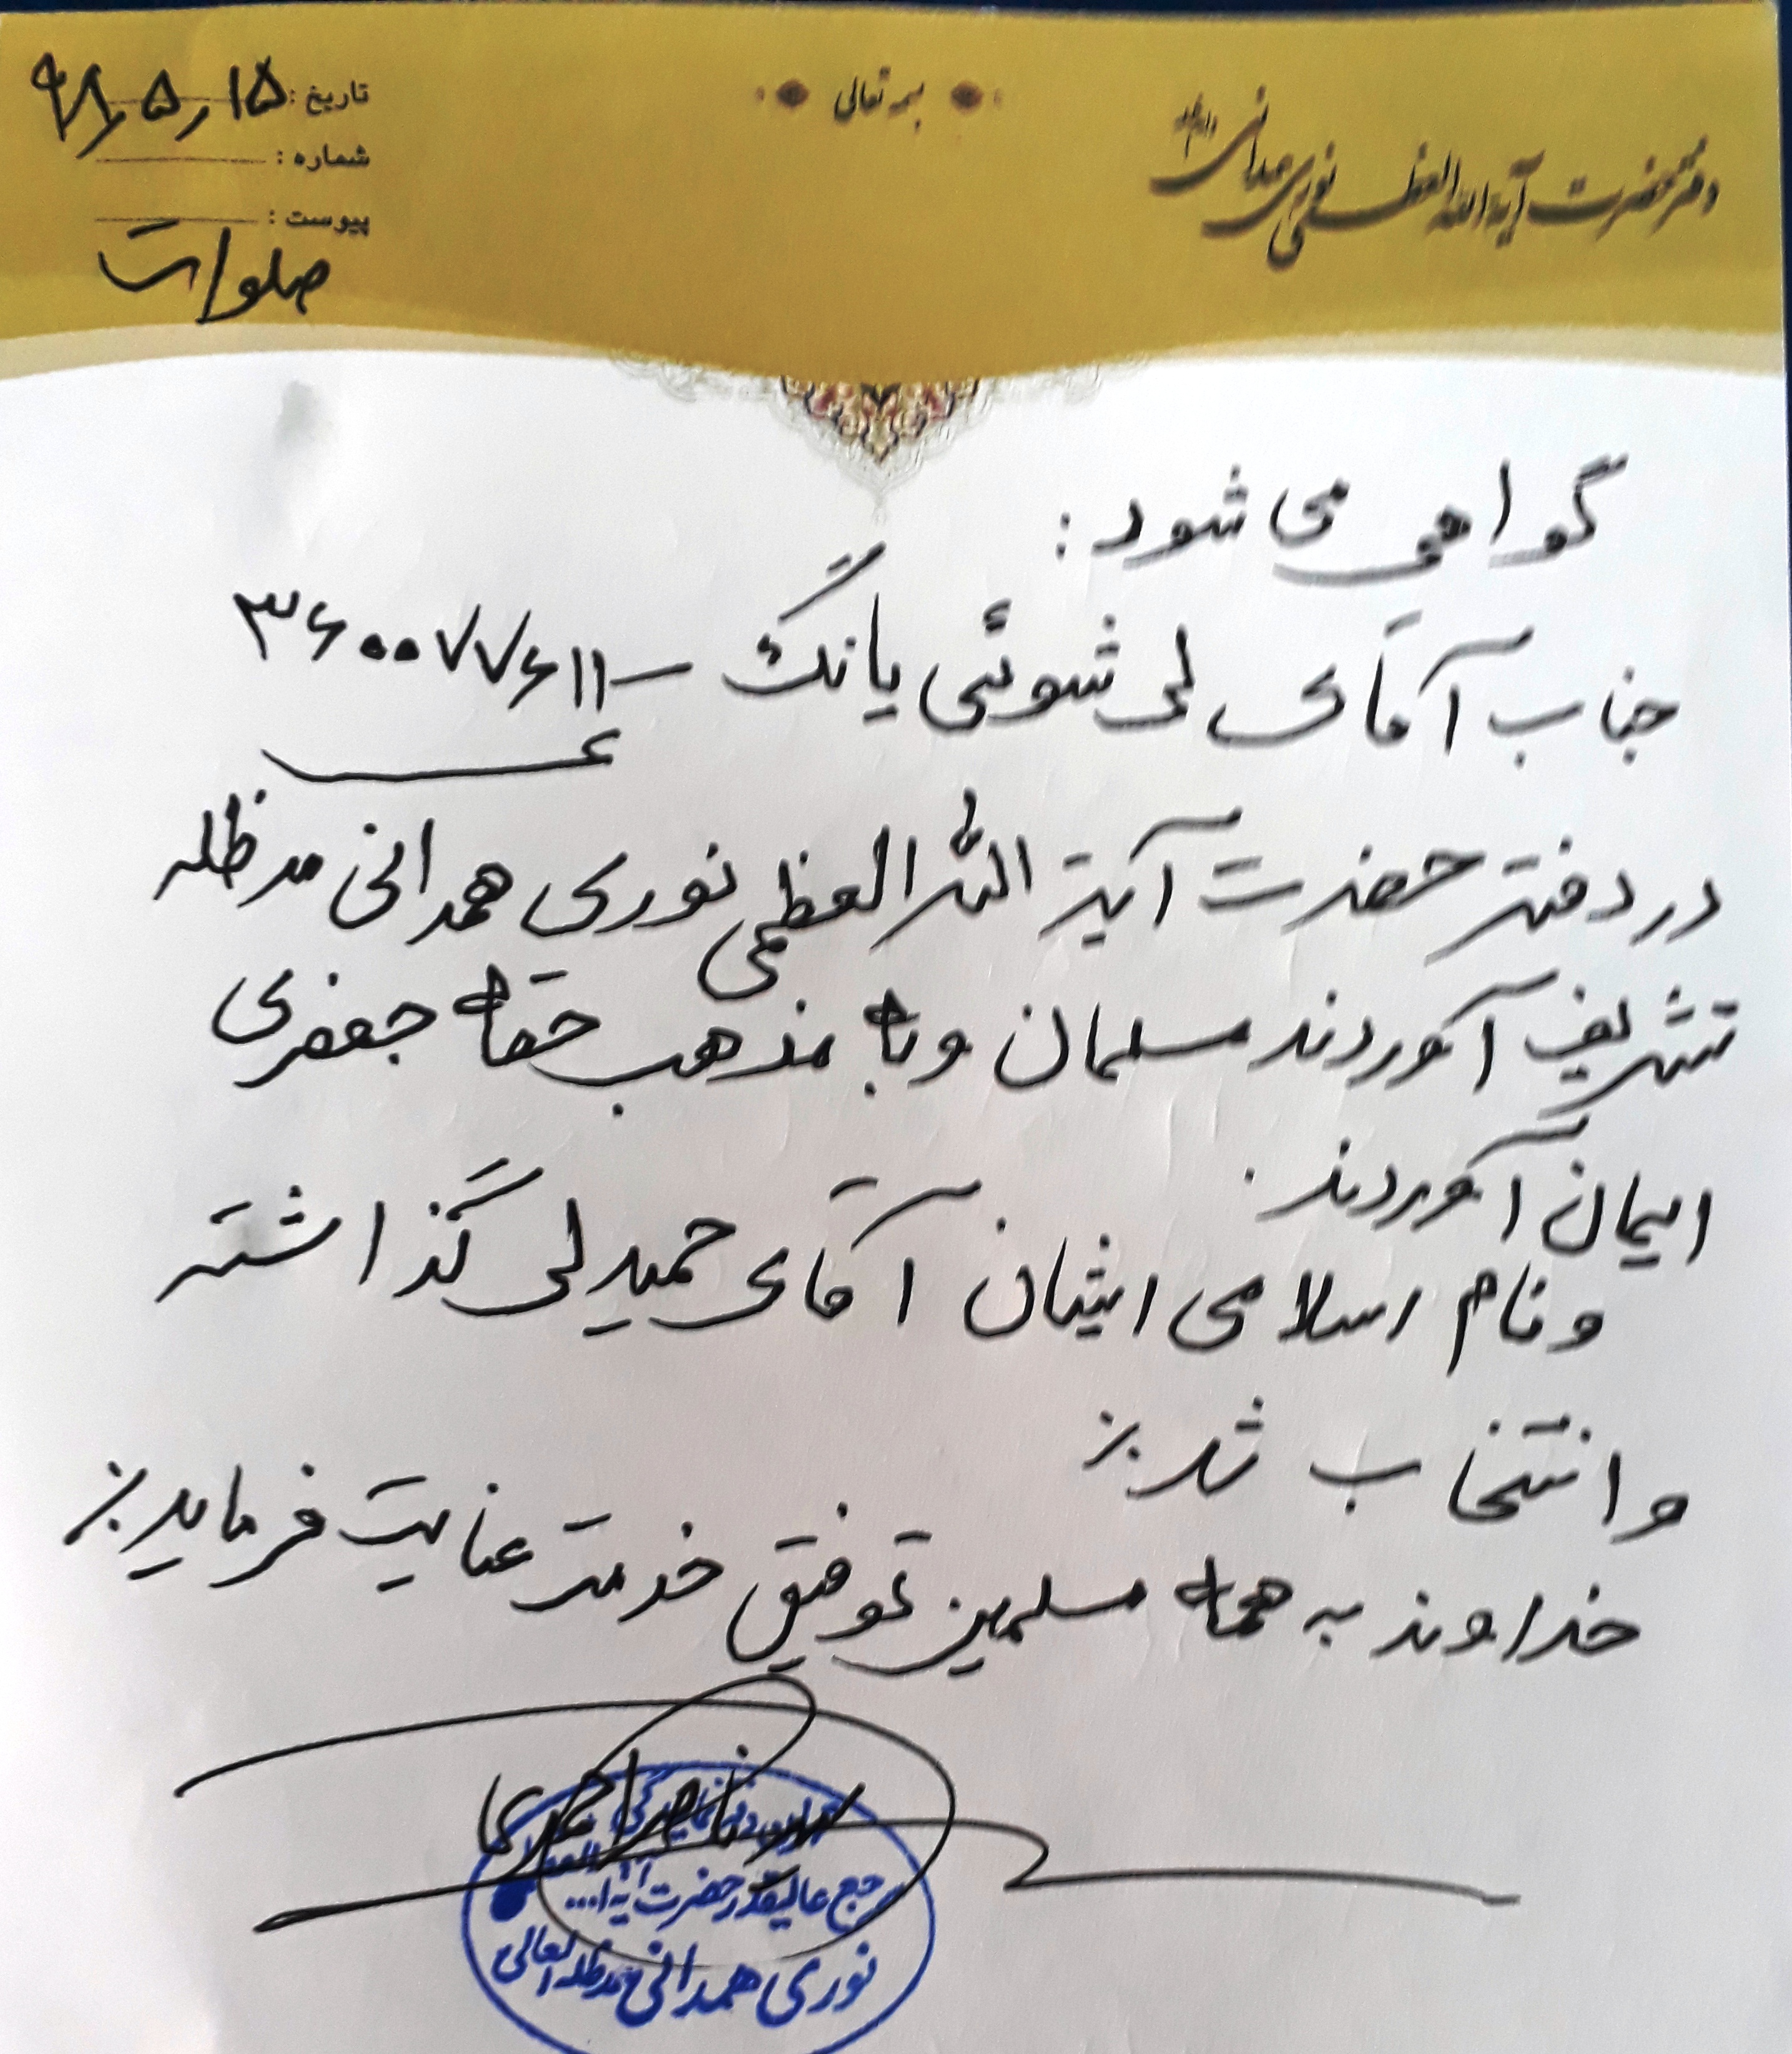 بسمه تعالی
دفتر حضرت آیة الله العظمی نوری همدانی
تاریخ : ۹۸٫۵٫۱۵
شماره :
پیوست :
صلوات
گواهی می شود :
جناب آقای لی شوئی یانگ – ۳۶۰۰۷۷۶۱۱
در دفتر حضرت آیة الله العظمی نوری همدانی مدظله
تشریف آوردند مسلمان و به مذهب حقه جعفری
ایمان آوردند .
و نام اسلامی ایشان آقای حمید لی گذاشته
و انتخاب شد
خداوند به همه مسلمین توفیق خدمت عنایت فرماید
ناصر احمدی
عالیقدر حضرت آیة ا...
نوری همدانی مدظله العالی